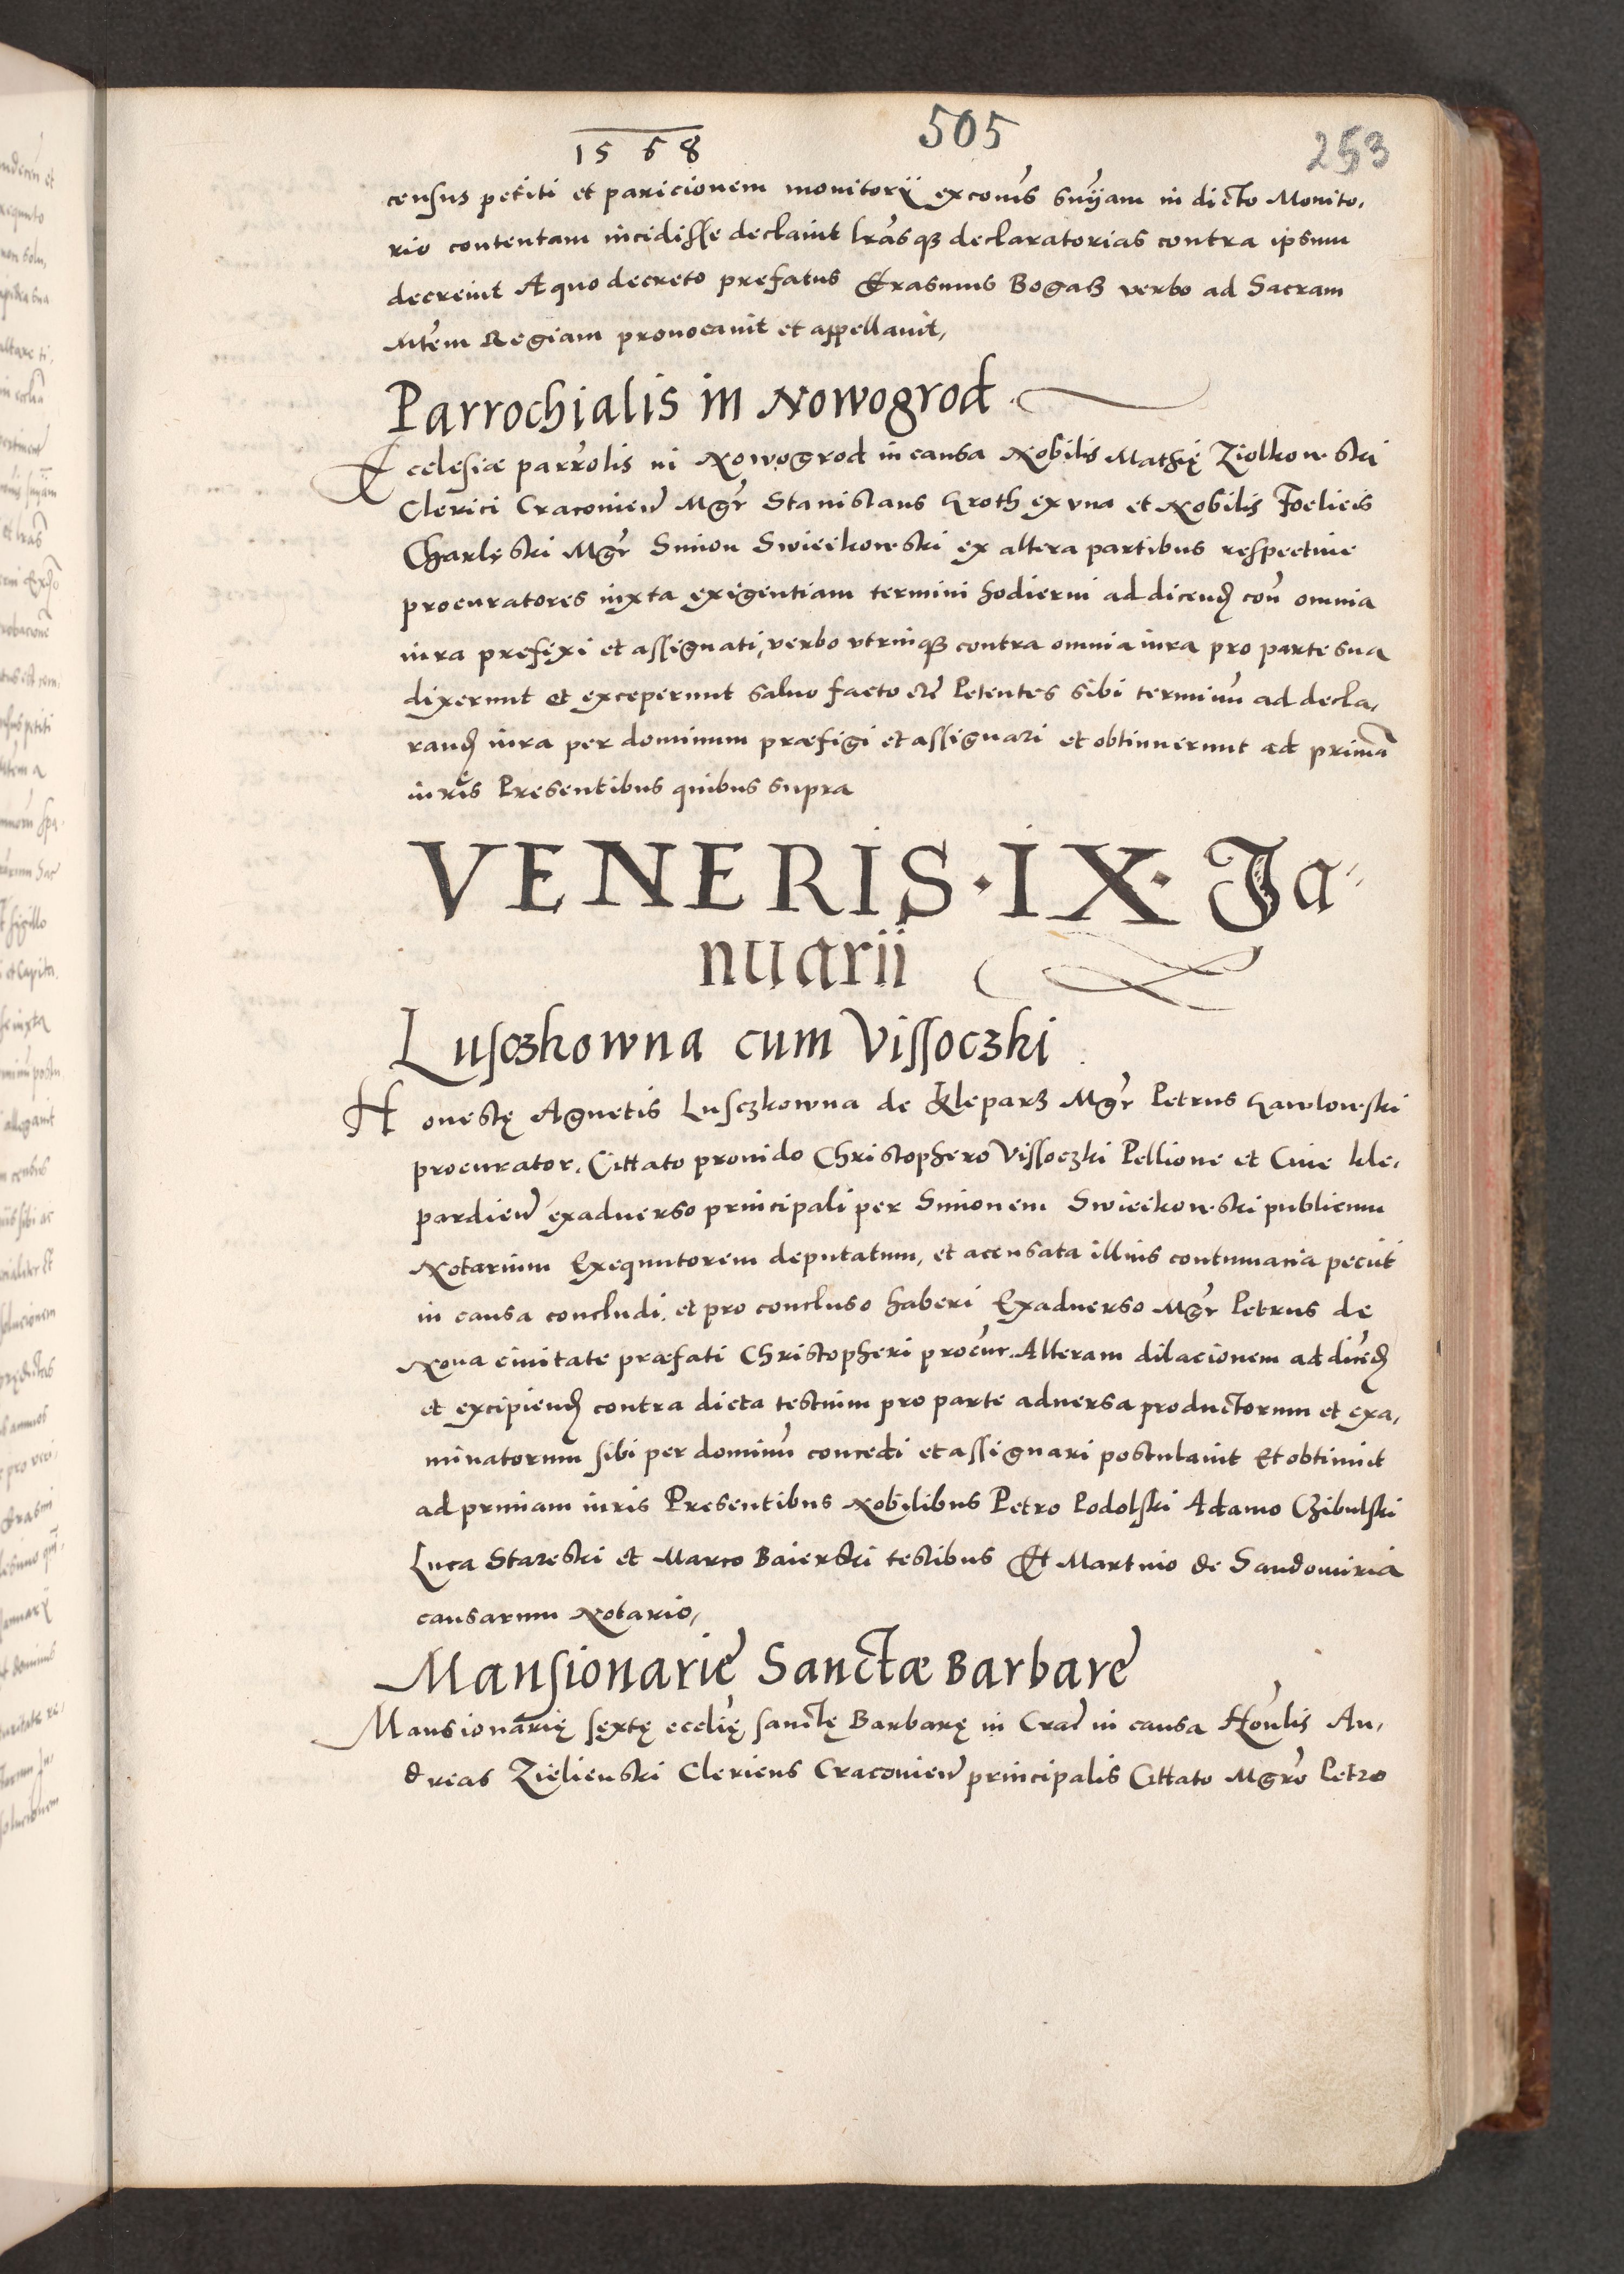 505
1568
253
census petiti et paricionem monitorÿ exconīs snÿam in dicto Monito,
rio contentam incidisse declarīt lrās qꝫ declaratorias contra ipsum
decreuit A quo decreto prefatus Erasmus Bogasz verbo ad Sacram
Mtēm Regiam prouocauit et appellauit,
Parrochialis in Nowogrod
Ecclesiæ parrōlis in Nowogrod in causa Nobilis Mathię Ziolkowski
Clerici Cracovien̄ Mgr̄ Stanislaus Kroth ex vna et Nobilis Foelicis
Charlęski Mgr̄ Simon Swieikowski ex altera partibus respectiue
procuratores iuxta exigentiam termini hodierni ad dicend͛ con̄ omnia
iura prefixi et assignati, verbo vtrinqꝫ contra omnia iura pro parte sua
dixerunt et exceperunt saluo facto etc̄ Petentes sibi terminū ad decla,
rand͛ iura per dominum præfigi et assignari et obtinuerunt ad primā
iuris Presentibus quibus supra
VENERIS · IX · Ja-
nuarii
Lusczkowna cum Vissoczki
Honestę Agnetis Lusczkowna de Kleparz Mgr̄ Petrus Kawlowski
procurator. Cittato prouido Christophero Vissoczki Pellione et Ciue Kle,
pardien̄ exaduerso principali per Simonem Swieikowski publicum
Notarium Exequutorem deputatum, et acensata illius contumacia peciit
in causa concludi, et pro concluso haberi Exaduerso Mgr̄ Petrus de
Noua ciuitate præfati Christopheri procūr. Alteram dilacionem ad dicēd͛
et excipiend͛ contra dicta testium pro parte aduersa productorum et exa,
minatorum sibi per dominū concedi et assignari postulauit Et obtinuit
ad primam iuris Presentibus Nobilibus Petro Podolski Adamo Czibulski
Luca Stareski et Marco Baierski testibus Et Martino de Sandomiria
causarum Notario,
Mansionarie Sanctæ Barbare
Mansionarię sextę ecclię, sanctę Barbarę in Crac̄ in causa Hon̄lis An,
dreas Zielienski Clericus Cracovien̄ principalis Cittato Mgrō Petro